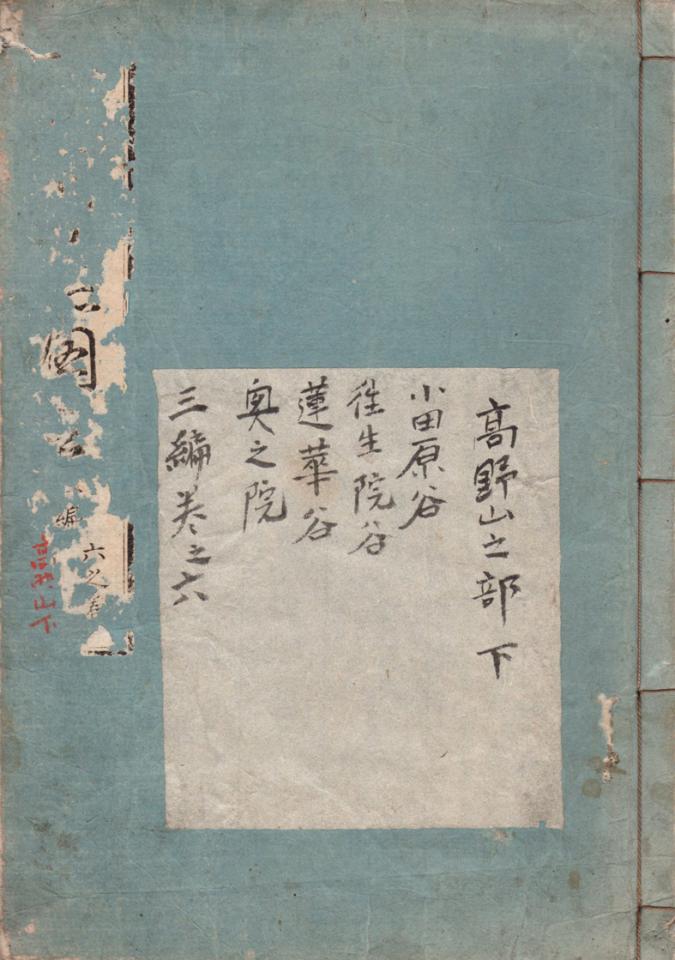 高野山之部 下
小田原谷
徃生院谷
蓮華谷
奥之院
三編巻之六
図
編
六之巻
高野山下